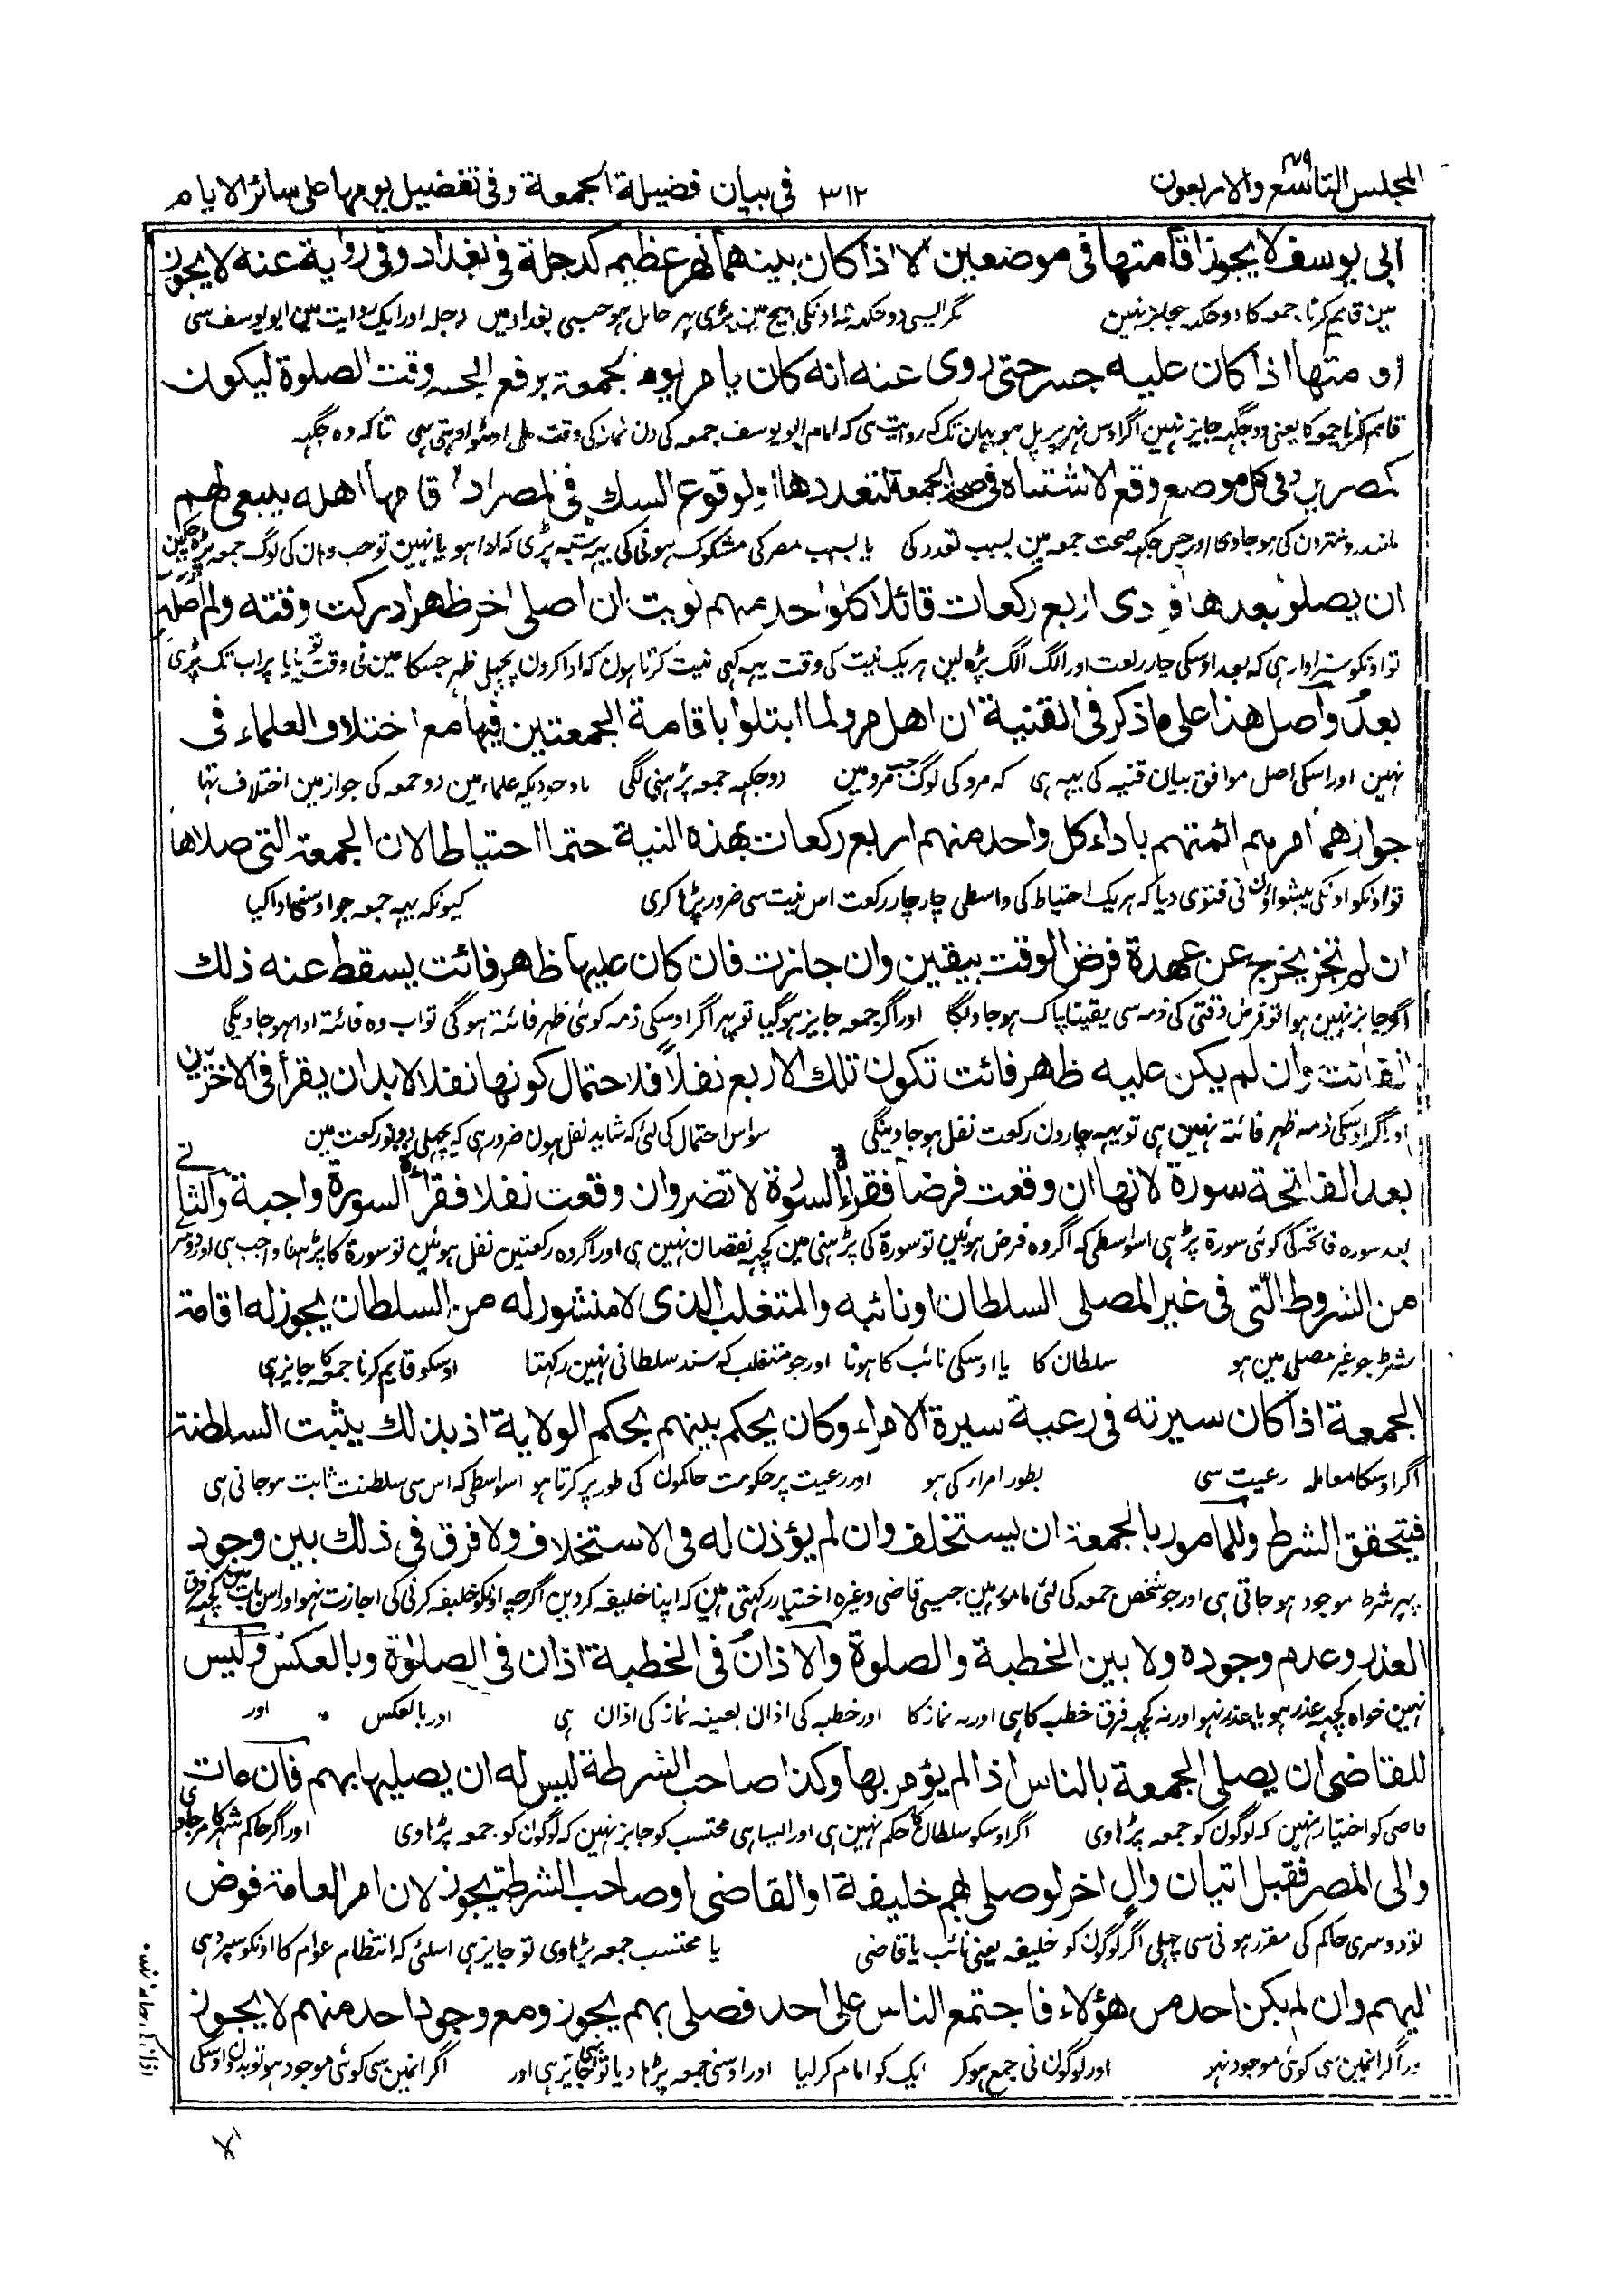 المجلس التاسع والاربعون ٣١٢ فى بيان فضيلة الجمعة وفى تفضيل يومها على سائر الايام
ابى يوسف لا يجوز اقامتها فى موضعين الا اذا كان بينهما نهر عظيم كدجلة فى بغداد وفى رواية عنه لا يجوز
مین قایم کرنا جمعہ کا دو جگہہ جایز نہین مگر ایسی دو جگہہ کہ اونکی بیچ مین بڑی نہر حایل ہو جیسی بغداد میں دجلہ اور ایک روایت مین ابو یوسف سی
اذا كان عليه جسر حتى روى عنه انه كان يامر يوم الجمعة برفع الجسر وقت الصلوة ليكون
قایم کرنا جمعہ کا یعنی دو جگہہ جایز نہین اگر اوس نہر پر پل ہو یہان تک کہ روایت ہی کہ امام ابو یوسف جمعہ کی دن نماز کی وقت پل اوٹھوا دیتی تہی تاکہ وہ جگہہ
كمصرين وفى كل موضع وقع الاشتباه فى صحة الجمعة لتعددها او لوقوع الشك فى المصر اذا قامها اهله ينبغى لهم
مانند دو شہرون کی ہو جاوی اور جس جگہہ صحت جمعہ مین بسبب تعدد کی یا بسبب مصر کی مشکوک ہونی کی یہہ شبہ پڑی کہ ادا ہو یا نہین تو جب وہان کی لوگ جمعہ پڑہ چکین
ان يصلوا بعدها فرادى اربع ركعات قائلا كل واحد منهم نويت ان اصلى اخر ظهر ادركت وقته ولم اصله
تو اونکو سزاوار ہی کہ بعد اوسکی چار رکعت اور الگ الگ پڑہ لین ہر یک نیت کی وقت یہہ کہی نیت کرتا ہون کہ ادا کرون پچھلی ظہر جسکا مین نی وقت تو پایا پر اب تک پڑہی
بعد واصل هذا على ما ذكر فى القنية ان اهل مرو لما ابتلوا باقامة الجمعتين فيها مع اختلاف العلماء فى
نہین اور اسکی اصل موافق بیان قنیہ کی یہہ ہی کہ مرو کی لوگ جب مرو مین دو جگہہ جمعہ پڑہنی لگی باوجودیکہ علماء مین دو جمعہ کی جواز مین اختلاف تہا
جوازهما امرهم ائمتهم باداء كل واحد منهم اربع ركعات بهذه النية حتما احتياطا لان الجمعة التى صلاها
تو اونکو اونکی پیشواؤن نی فتوی دیا کہ ہر یک احتیاط کی واسطی چار چار رکعت اس نیت سی ضرور پڑہا کری کیونکہ یہہ جمعہ جو اوسنی ادا کیا
ان لم تجز يخرج عن عهدة فرض الوقت بيقين وان جازت فان كان عليها ظهر فائت يسقط عنه ذلك
اگر جایز نہین ہوا تو فرض وقتی کی ذمہ سی یقینا پاک ہو جاویگا اور اگر جمعہ جایز ہوگیا تو پہر اگر اوسکی ذمہ کوئی ظہر فائتہ ہوگی تو اب وہ فائتہ ادا ہو جاویگی
الفائت وان لم يكن عليه ظهر فائت تكون تلك الاربع نفلا فلاحتمال كونها نفلا لابد ان يقرأ فى الاخريين
اور اگر اوسکی ذمہ ظہر فائتہ نہین ہی تو یہہ چارون رکعت نفل ہو جاوینگی سو اس احتمال کی لئی کہ شاید نفل ہون ضرور ہی کہ پچھلی دونو رکعت مین
بعد الفاتحة سورة لانها ان وقعت فرضا فقراءة السورة لا تضر وان وقعت نفلا فقراءة السورة واجبة والثانى
بعد سورہ فاتحہ کی کوئی سورة پڑہی اسواسطی کہ اگر وہ فرض ہوئین تو سورة کی پڑہنی مین کچہہ نقصان نہین ہی اور اگر وہ رکعتین نفل ہوئین تو سورة کا پڑہنا واجب ہی اور دوسری
من الشروط التى فى غير المصلى السلطان او نائبه والمتغلب الذى لا منشور له من السلطان يجوز له اقامة
شرط جو غیر مصلی مین ہو سلطان کا یا اوسکی نائب کا ہونا اور جو متغلب کہ سند سلطانی نہین رکہتا اوسکو قایم کرنا جمعہ کا جایز ہی
الجمعة اذا كان سيرته فى رعية سيرة الامراء وكان يحكم بينهم بحكم الولاية اذ بذلك يثبت السلطنة
اگر اوسکا معاملہ رعیت سی بطور امراء کی ہو اور رعیت پر حکومت حاکمون کی طور پر کرتا ہو اسواسطی کہ اس سی سلطنت ثابت ہو جاتی ہی
فيتحقق الشرط وللمامور بالجمعة ان يستخلف وان لم يؤذن له فى الاستخلاف ولا فرق فى ذلك بين وجود
پہر شرط موجود ہو جاتی ہی اور جو شخص جمعہ کی لئی مامور ہین جیسی قاضی وغیرہ اختیار رکہتی ہین کہ اپنا خلیفہ کردین اگرچہ اونکو خلیفہ کرنی کی اجازت نہو اور اس بات مین کچہہ فرق
العذر وعدم وجوده ولا بين الخطبة والصلوة والاذان فى الخطبة اذان فى الصلوة وبالعكس وليس
نہین خواہ کچہہ عذر ہو یا عذر نہو اور نہ کچہہ فرق خطبہ کا ہی اور نہ نماز کا اور خطبہ کی اذان بعینہ نماز کی اذان ہی اور بالعکس اور
للقاضى ان يصلى الجمعة بالناس اذا لم يؤمر بها وكذا صاحب الشرطة ليس له ان يصليها بهم فان مات
قاضی کو اختیار نہین کہ لوگون کو جمعہ پڑہاوی اگر اوسکو سلطان کا حکم نہین ہی اور ایسا ہی محتسب کو جایز نہین کہ لوگون کو جمعہ پڑہاوی اور اگر حاکم شہر کا مر جاوی
والى المصر فقبل اتيان وال اخر لو صلى بهم خليفة او القاضى او صاحب الشرطة يجوز لان امر العامة فوض
تو دوسری حاکم کی مقرر ہونی سی پہلی اگر لوگون کو خلیفہ یعنی نائب یا قاضی یا محتسب جمعہ پڑہاوی تو جایز ہی اسلئی کہ انتظام عوام کا اونکو سپرد ہی
اليهم وان لم يكن احد من هؤلاء فاجتمع الناس على احد فصلى بهم يجوز ومع وجود احد منهم لا يجوز
اور اگر انمین سی کوئی موجود نہو اور لوگون نی جمع ہو کر ایک کو امام کر لیا اور اوسنی جمعہ پڑہا دیا تو بہی جایز ہی اور اگر انمین سی کوئی موجود ہو تو بدون اوسکی